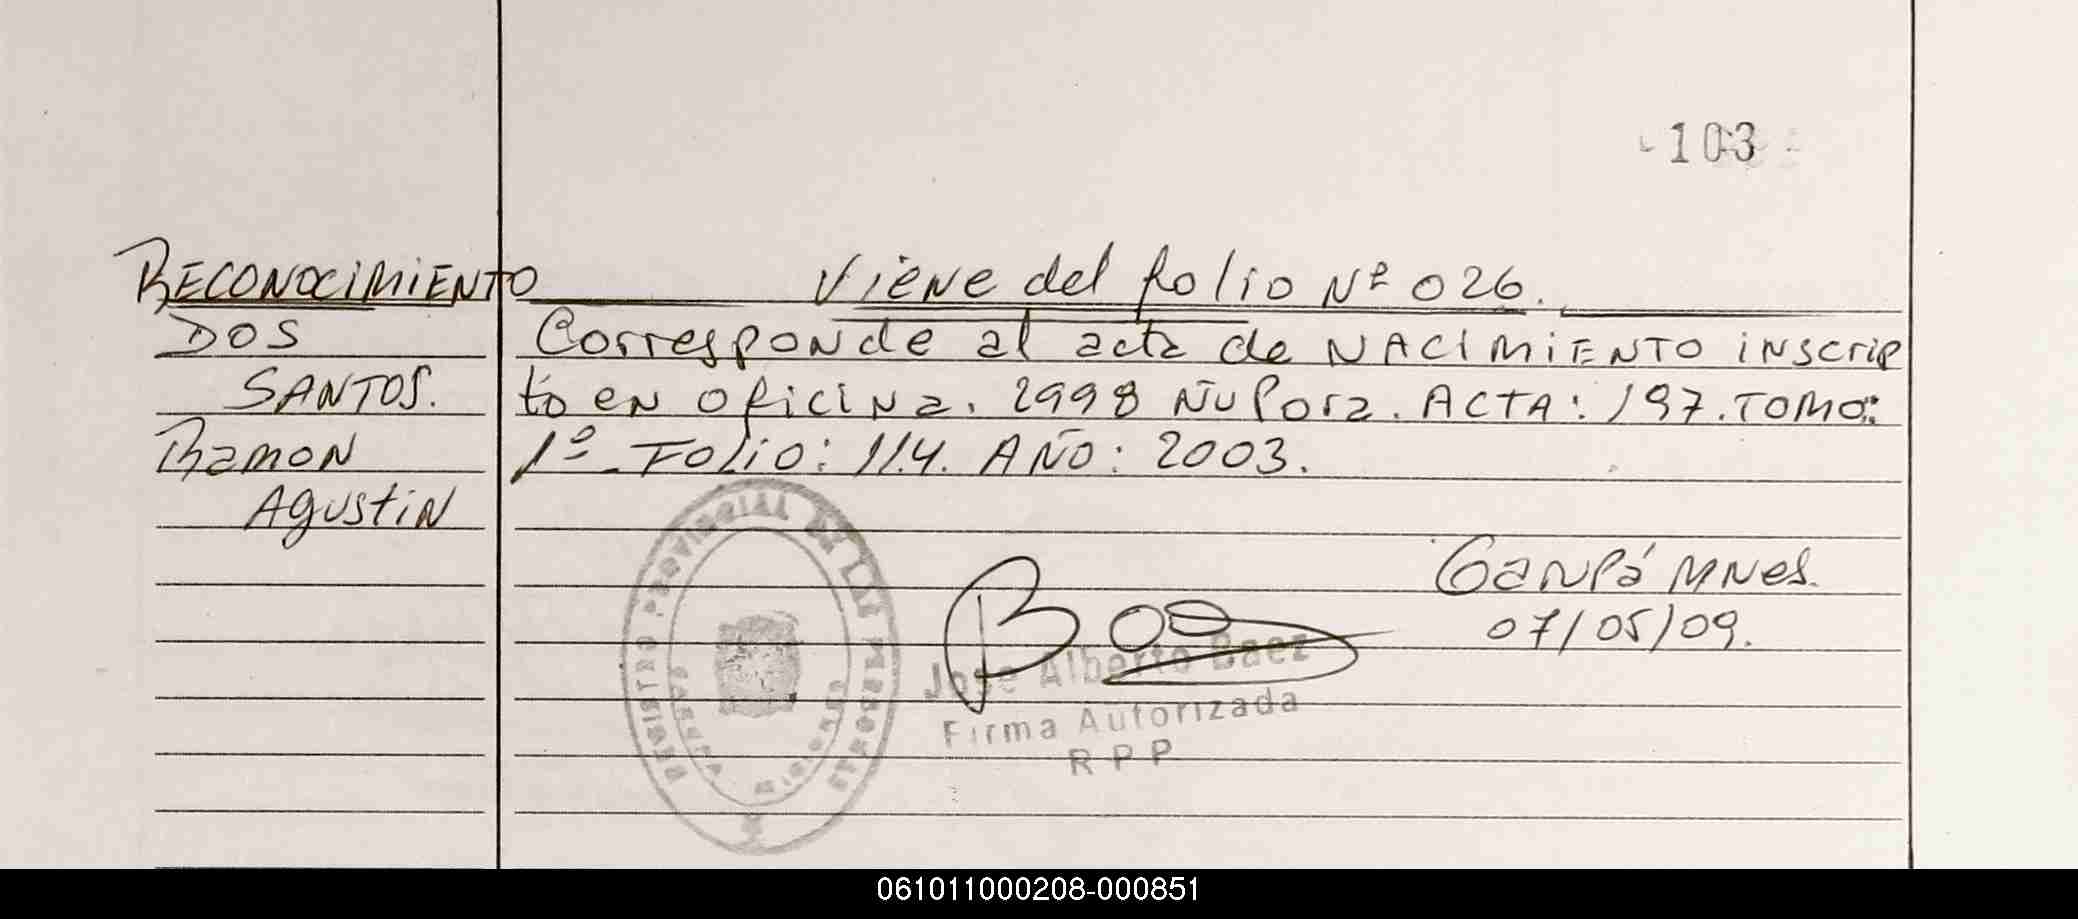 103
RECONOCIMIENTO
Viene del folio Nº 026.
DOS
SANTOS.
Ramon
Agustin
Corresponde al acta de NACIMIENTO inscrip
to en oficina. 2998 Ñu Pora. ACTA: 197. TOMO:
1º. Folio: 114. AÑO: 2003.
Ganpá MNes.
07/05/09.
REGISTRO PROVINCIAL DE LAS PERSONAS
Misiones
Jose Alberto Baez
Firma Autorizada
R P P
061011000208-000851